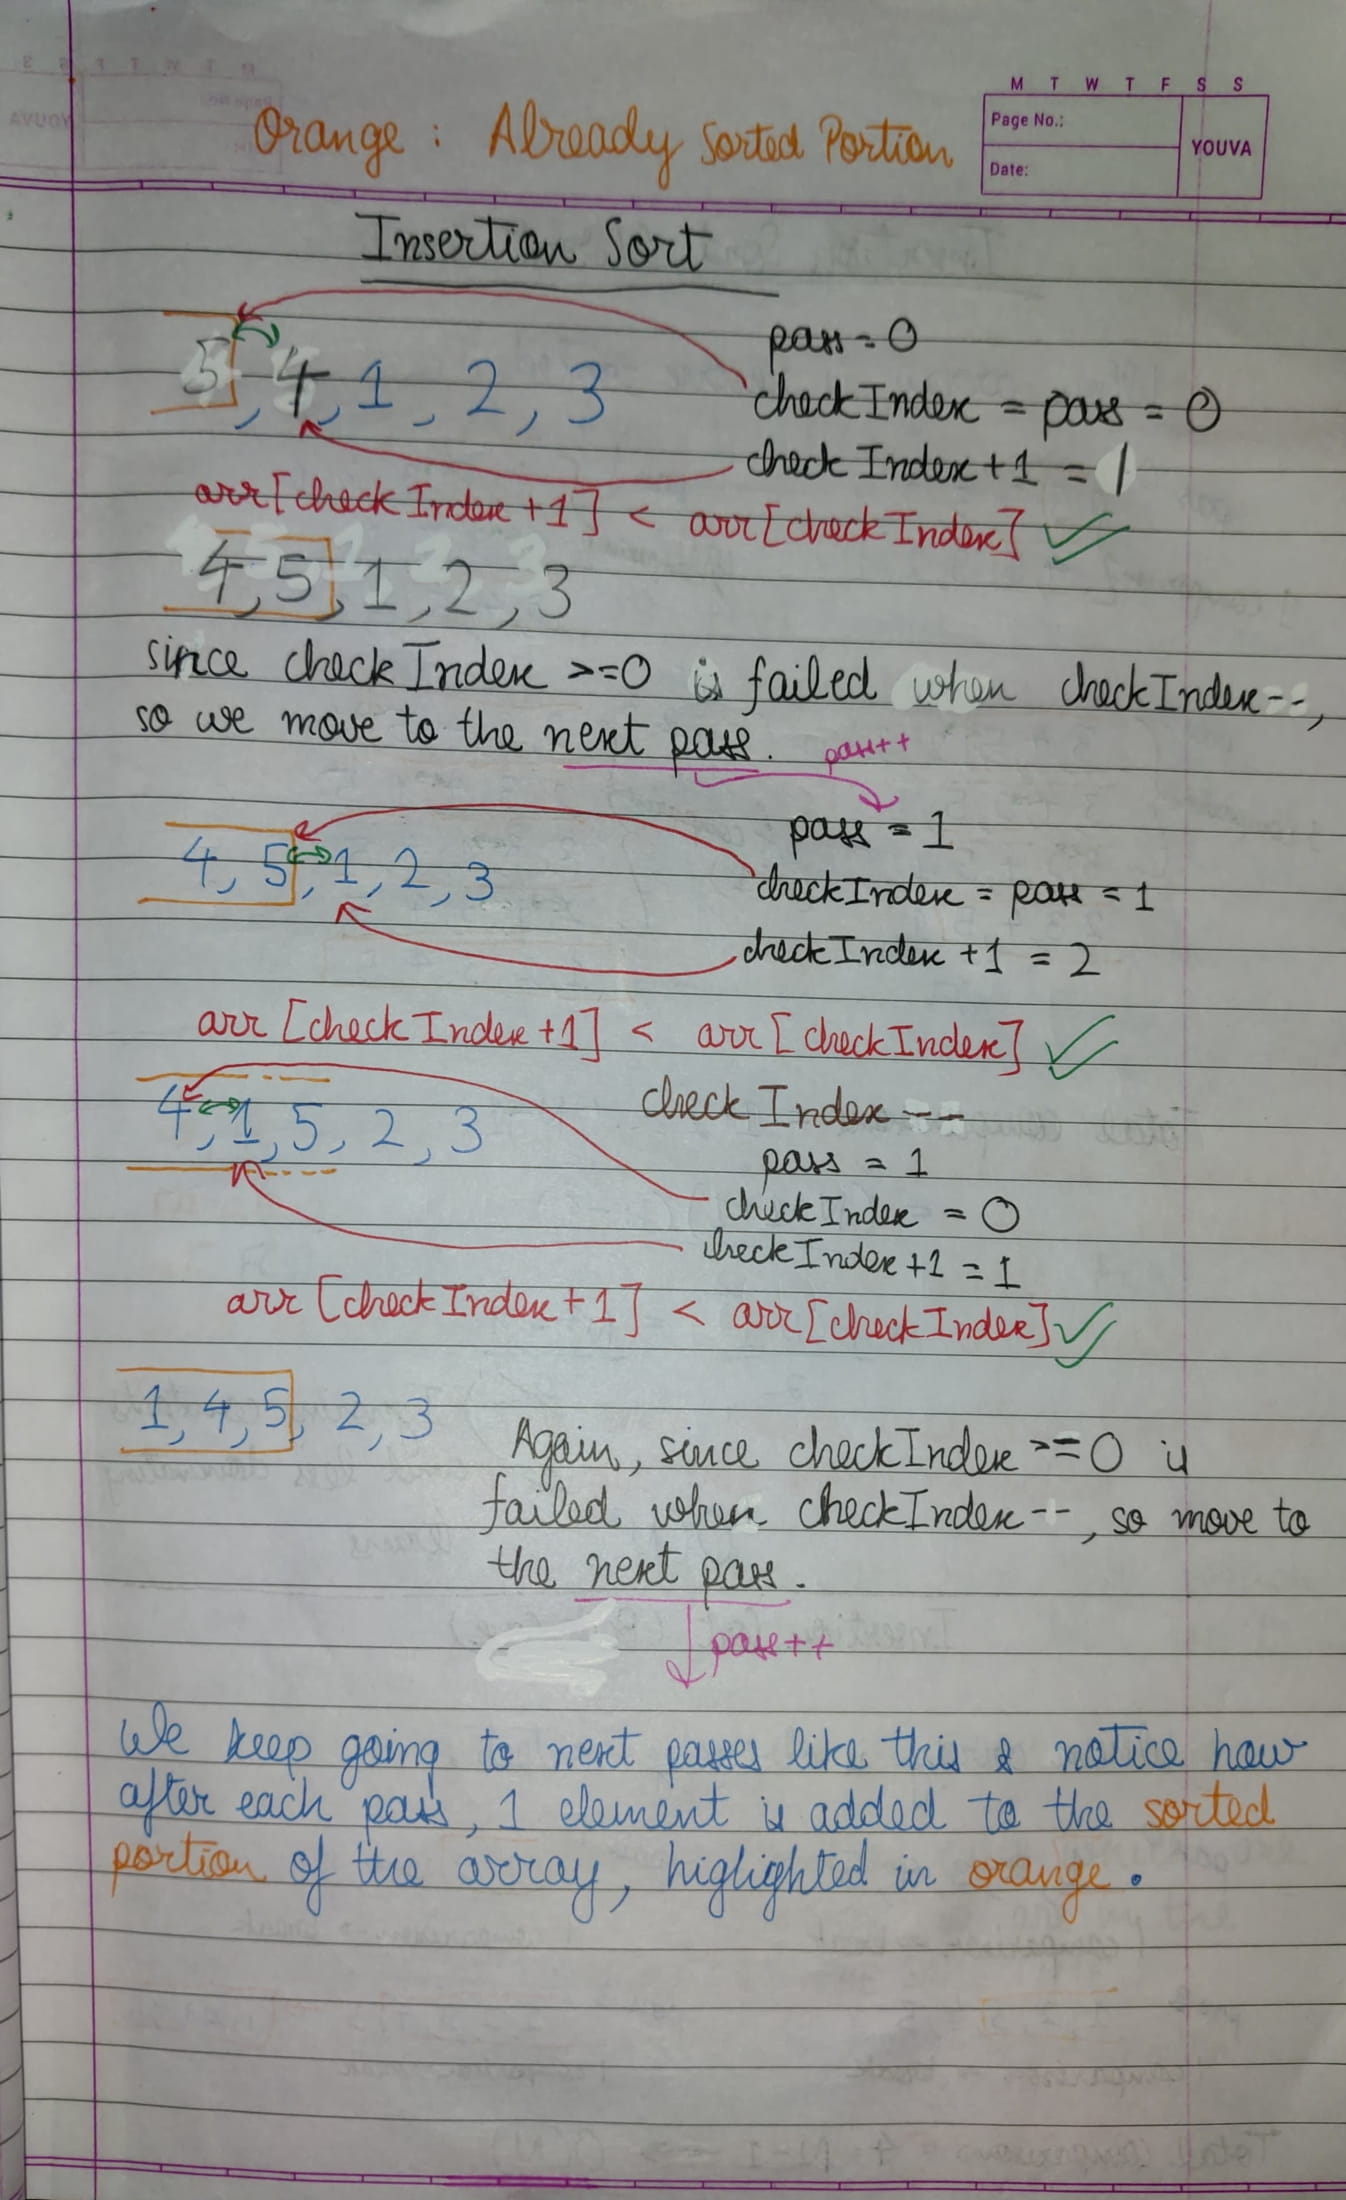 M T W T F S S
Page No.:
Date:
YOUVA
Orange : Already Sorted Portion
Insertion Sort
5, 4, 1, 2, 3
pass = 0
checkIndex = pass = 0
checkIndex+1 = 1
arr[checkIndex+1] < arr[checkIndex]
4, 5, 1, 2, 3
since checkIndex >=0 is failed when checkIndex--,
so we move to the next pass.
pass++
4, 5, 1, 2, 3
pass = 1
checkIndex = pass = 1
checkIndex +1 = 2
arr [checkIndex+1] < arr [checkIndex]
4, 1, 5, 2, 3
checkIndex --
pass = 1
checkIndex = 0
checkIndex+1 = 1
arr [checkIndex+1] < arr[checkIndex]
1, 4, 5, 2, 3
Again, since checkIndex >=0 is
failed when checkIndex--, so move to
the next pass.
pass++
We keep going to next passes like this & notice how
after each pass, 1 element is added to the sorted
portion of the array, higlighted in orange.